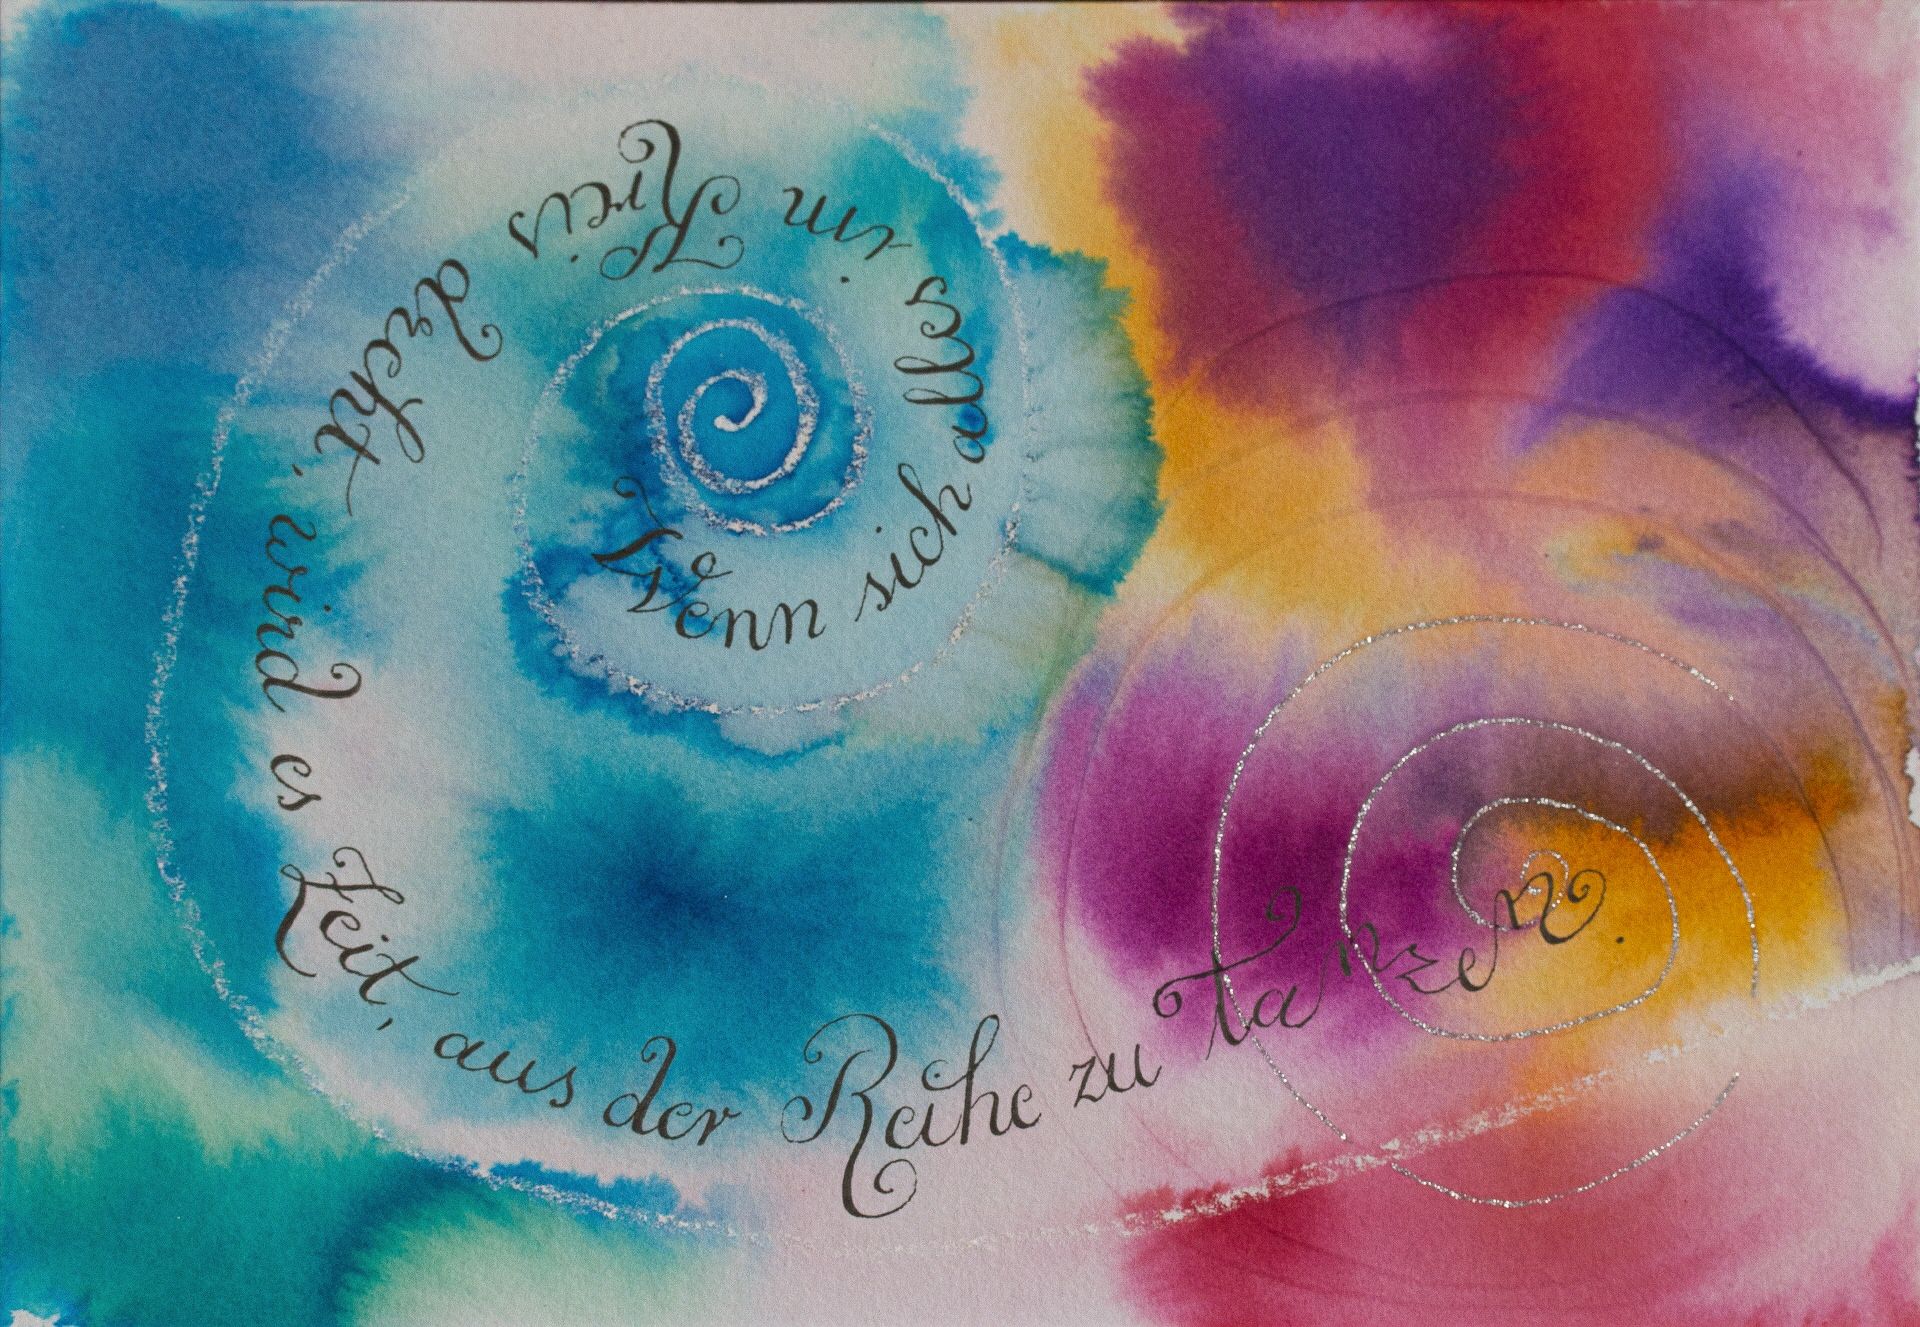 Wenn sich alles im Kreis dreht, wird es Zeit, aus der Reihe zu tanzen.